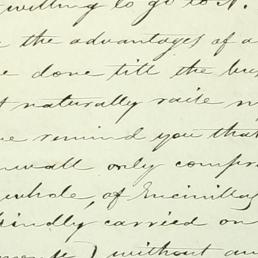 willing to go to N.
the advantages of a
done till the bus
naturally raise m
remind you that
wall only compr
whole, of Encinillas
kindly carried on
) without an